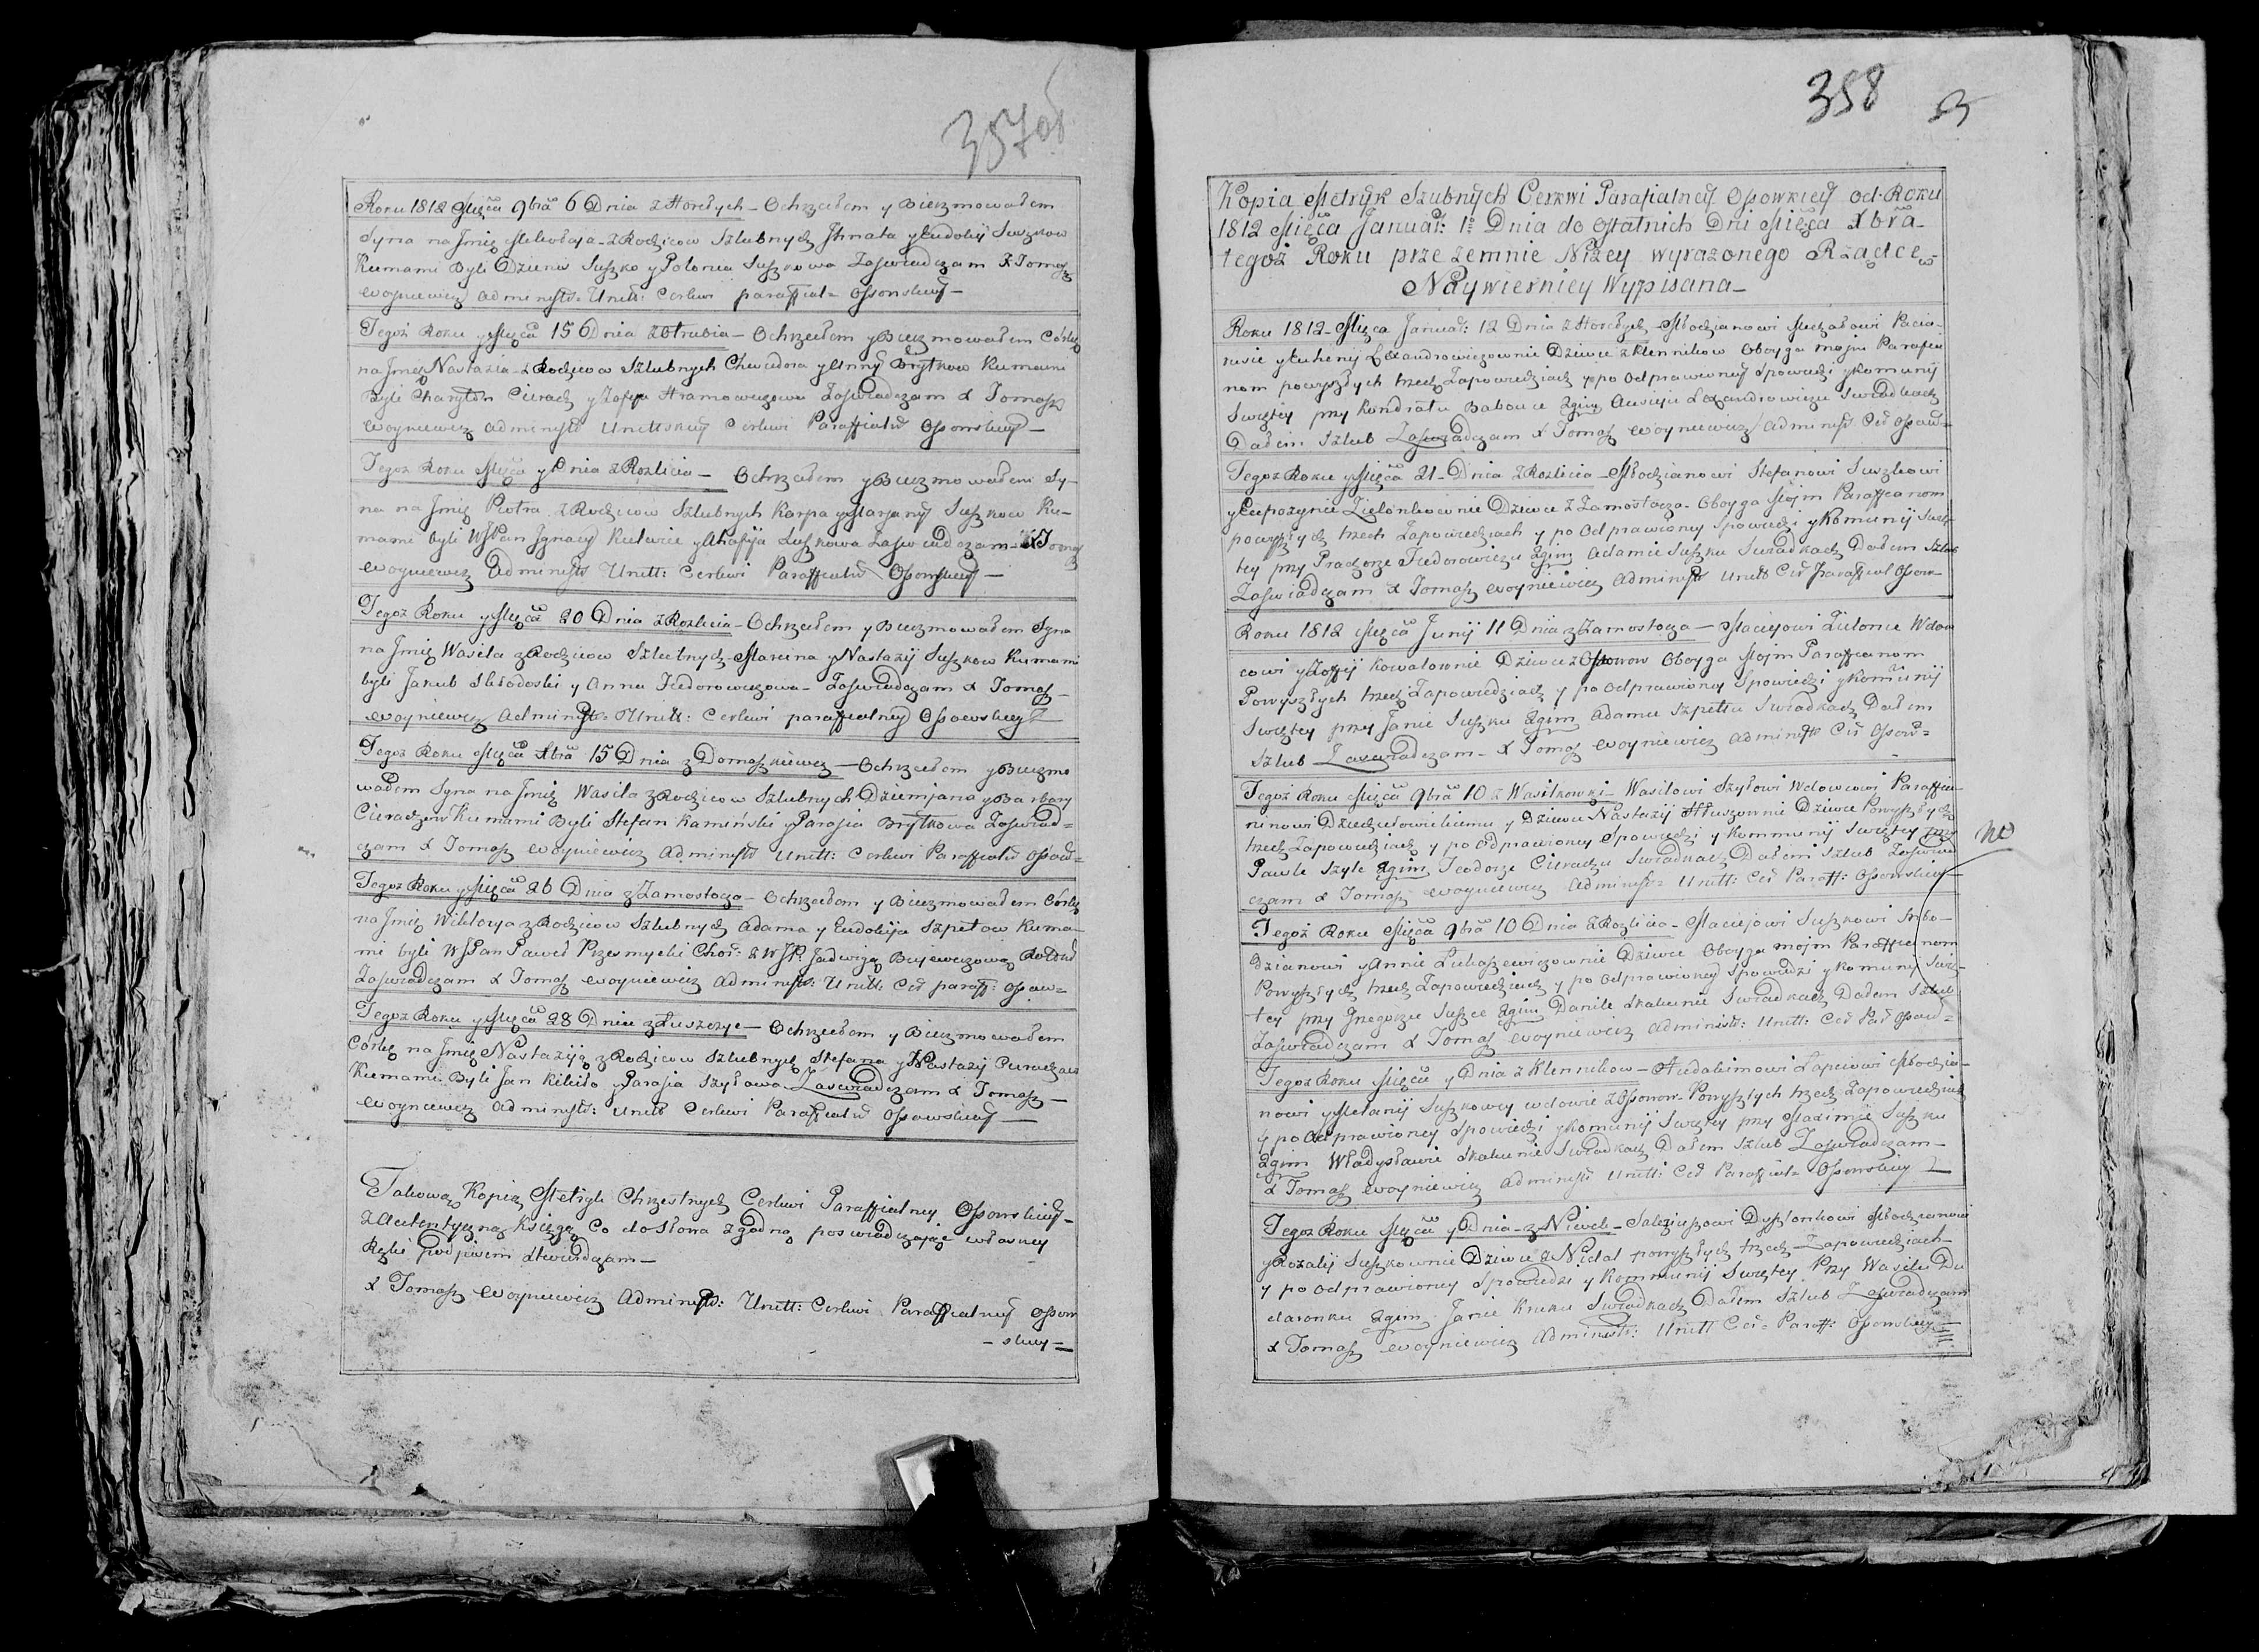 357 об
Roku 1812 Mięca 9bra 6 Dnia z Horełych – Ochrzciłem y Bierzmowałem
Syna na Jmię Mikołaja – z Rodziców Szlubnych Jhnata y Eudokij Suszkow
Kumami Byli Dzienis Suszko y Polonia Suszkowa Zaświadczam X Tomasz
Woyniewicz Administr: Unitt: Cerkwi paraffial: Ossowskiey –
Tegoż Roku y Mięca 15 Dnia z Otrubia – Ochrzciłem y Bierzmowałem Córkę
na Jmię Nastazia – z Rodziców Szlubnych Chwedora y Anny Brytkow Kumami
Byli Charyton Cierach y Zofija Hramowiczowa Zaświadczam X Tomasz
Woyniewicz Administr Unittskiey Cerkwi Paraffialn Ossowskiey –
Tegoż Roku Mięca y Dnia z Rozlicia – Ochrzciłem y Bierzmowałem Sy-
na na Jmię Piotra z Rodziców Szlubnych Karpa y Maryany Suszkow Ku-
mami byli WJPan Jgnacy Kulwiec y Ahafija Suszkowa Zaświadczam – X Tomasz
Woyniewicz Administr Unitt: Cerkwi Paraffialn Ossowskiey –
Tegoż Roku y Mięca 20 Dnia z Rozlicia – Ochrzciłem y Bierzmowałem Syna
na Jmię Wasila z Rodziców Szlubnych Marcina y Nastazij Suszkow Kumami
byli Jakub Skłodoski y Anna Fiedorowiczowa – Zaświadczam X Tomasz –
Woyniewicz Administr: Unitt: Cerkwi paraffialney Ossowskiey
Tegoż Roku Mięca Xbra 15 Dnia z Domaszkiewicz – Ochrzciłem y Bierzmo
wałem Syna na Jmię Wasila z Rodziców Szlubnych Dziemjana y Barbary
Cierachow Kumami Byli Stefan Kamiński y Parasia Brytkowa Zaświad=
czam X Tomasz Woyniewicz Administr Unitt: Cerkwi Paraffialn Ossow=
Tegoż Roku y Mięca 26 Dnia z Zamostocza – Ochrzciłem y Bierzmowałem Córkę
na Jmię Wiktorya z Rodziców Szlubnych Adama y Eudokija Szpetow Kuma-
mi byli WJPan Paweł Przesmycki Chor: z WJP. Jadwigą Bujewiczową
Zaświadczam X Tomasz Woyniewicz Administr: Unitt: Cer paraff: Ossow=
Tegoż Roku y Mięca 28 Dnia z Łuszczyc – Ochrzciłem y Bierzmowałem
Córkę na Jmię Nastaziją z Rodziców Szlubnych Stefana y Nastazij
Kumami Byli Jan Kikiło y Parasia Szyłowa Zaświadczam X Tomasz –
Woyniewicz Administr: Unitt Cerkwi Paraffialn Ossowskiey –
Takową Kopią Metryk Chrzestnych Cerkwi Paraffialney Ossowskiey –
z Autentyczną Księgą Co do słowa zgodną poświadczając własney
Ręki podpisem stwierdzam –
X Tomasz Woyniewicz Administr: Unitt: Cerkwi Paraffialney Ossow
– skiey –
358
Kopia Metryk Szlubnych Cerkwi Parafialney Osowkiey od Roku
1812 Mięca Januar: 1º Dnia do Ostatnich Dni Mięca Xbra –
tegoż Roku prze zemnie Niżey wyrażonego Rządcę
Naywierniey Wypisana –
Roku 1812 – Mięca Januar: 12 Dnia z Horełych – Młodzianowi Michałowi Pacia-
rusie y Euhenij Lexandrowiczownie Dziewce z Klennikow Oboyga moim Parafia
nom powyszłych trzech Zapowiedziach y po odprawioney Spowiedzi y Komunij
Swiętey przy Kondratu Babońce Zgim Auxięju Lexandrowiczu Swiadkach
Dałem Szlub Zaświadczam X Tomasz Woyniewicz Administr Cer Ossow=
Tegoż Roku y Mięca 21 – Dnia z Rozlicia – Młodzianowi Stefanowi Suszkowi
y Eufrozynie Zielonkownie Dziewce z Zamostocza – Oboyga Moim Paraffianom
powyszłych trzech Zapowiedziach y po Odprawioney Spowiedzi y Komunij Swię-
tey przy Fiedorowiczu Zgim Adamie Suszku Swiadkach Dałem Szlub
Zaświadczam X Tomasz Woyniewicz Administr Unitt Cer Paraffial Ossow=
Roku 1812 Mięca Junij 11 Dnia z Zamostocza – Maciejowi Zielonce Wdow
cowi y Zoffij Kowalownie Dziewce z Ossowow Oboyga Moim Paraffianom
Powyszłych trzech Zapowiedziach y po Odprawioney Spowiedzi y Komunij
Swiętey przy Janie Suszku Zgim Adamie Szpetku Swiadkach Dałem
Szlub Zaświadczam – X Tomasz Woyniewicz Administr Cer Ossow=
Tegoż Roku Mięca 9bra 10 z Wasilkowki – Wasilowi Szyłowi Wdowcowi Paraffia-
ninowi Dziedziełowickiemu y Dziewce Nastazij Hłuszownie Dziewce Powyszłych
trzech Zapowiedziach y po Odprawioney Spowiedzi y Kommunij Swiętey przy
Pawle Szyle Zgim Teodorze Cierachu Swiadkach Dałem Szlub Zaświad
czam X Tomasz Woyniewicz Administr: Unitt: Cer Paraff: Ossowskiey
Tegoż Roku Mięca 9bra 10 Dnia z Rozlicia – Maciejowi Suszkowi Mło-
dzianowi y Annie Łukaszewiczownie Dziewce Oboyga moim Paraffianom
Powyszłych trzech Zapowiedziach y po odprawioney Spowiedzi y Komunij Swię-
tey przy Jhnegorze Suszce Zgim Danile Skakunie Swiadkach Dałem Szlub
Zaświadczam X Tomasz Woyniewicz Administr: Unitt: Cer Par Ossow=
Tegoż Roku Mięca y Dnia z Klennikow – Łapciowi Młodzia-
nowi y Melanij Suszkowey wdowie z Ossowow – Powyszłych trzech Zapowiedziach
y po Odprawioney Spowiedzi y Komunij Swiętey przy Maximie Suszku
Zgim Władysławie Skakunie Swiadkach Dałem Szlub Zaświadczam –
X Tomasz Woyniewicz Administr Unitt: Cer Paraffial= Ossowskiey
Tegoż Roku Mięca y Dnia – z Niwek – Dysztonkowi Młodzianowi
y Rozalij Suszkownie Dziewce z Nidal powyszłych trzech – Zapowiedziach –
y po odprawioney Spowiedzi y Kommunij Swiętey Przy Wasilu Du
daronku Zgim Janie Kruku Swiadkach Dałem Szlub Zaświadczam
X Tomasz Woyniewicz Administr: Unitt Cer= Paraff: Ossowskiey